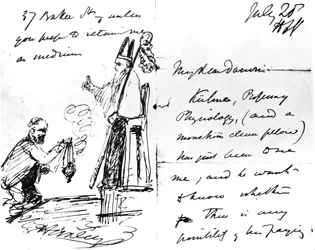 37 Baker St, unless
you hope to retain me
as medium
July 20
My dear Darwin
Kühne, Professor
Physiology, (and a
clean fellow)
has just been to see
me, and he wants
to know whether
There is any
possibility of his paying